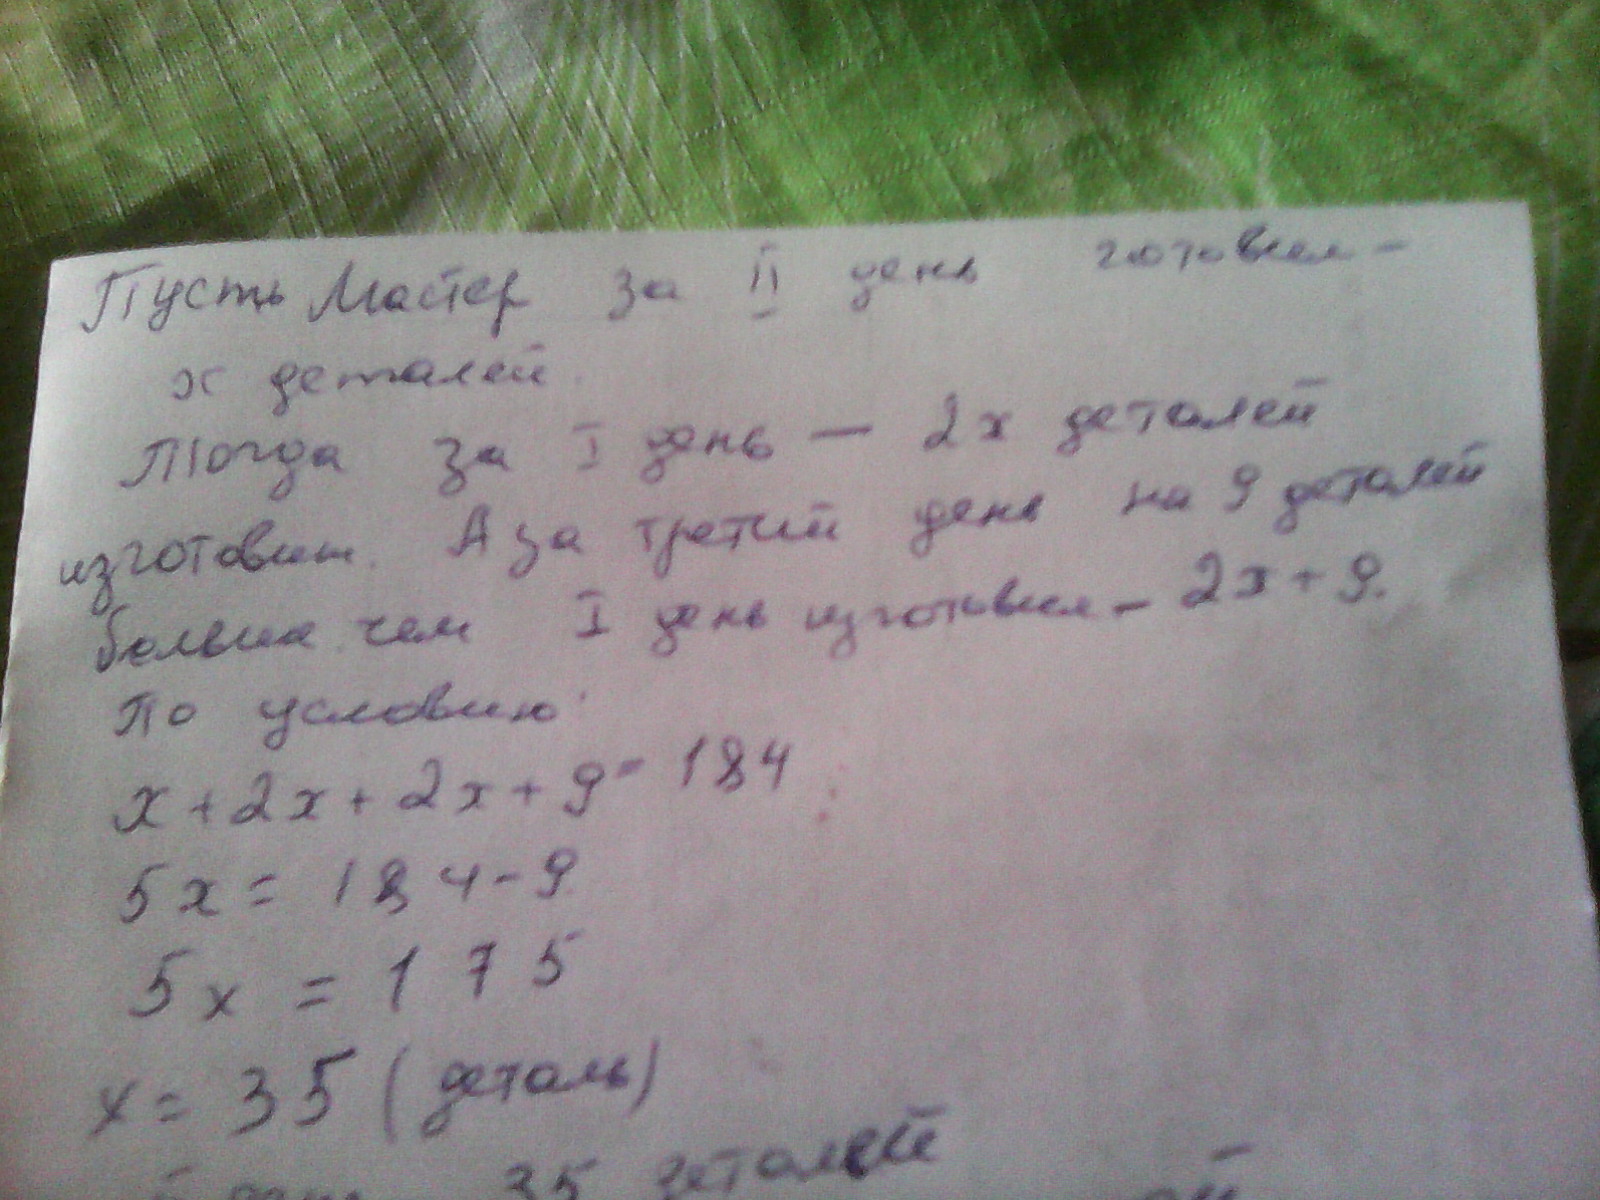 Пусть Мастер за II день готовил -
x деталей.
Тогда за I день — 2x деталей
изготовил. А за третий день на 9 деталей
больше чем I день изготовил - 2x + 9.
По условию:
x + 2x + 2x + 9 = 184
5x = 184 - 9
5x = 175
x = 35 (деталь)
35 деталей